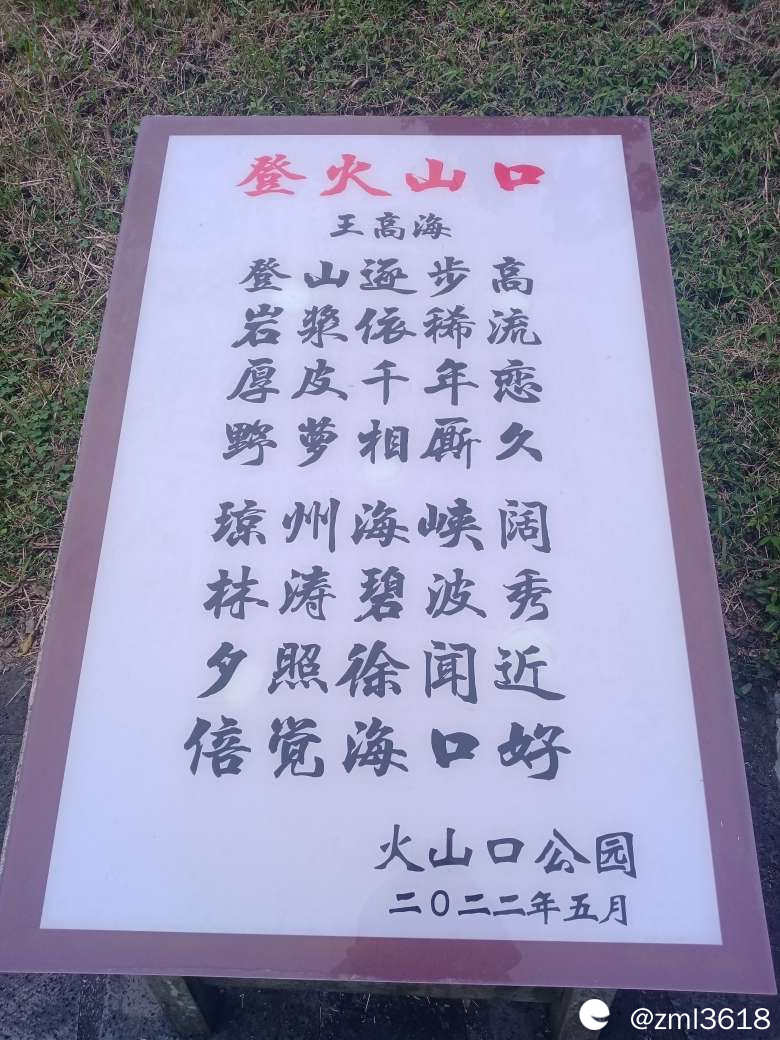 登火山口
王高海
登山逐步高
岩浆依稀流
厚皮千年恋
野萝相厮久
琼州海峡阔
林涛碧波秀
夕照徐闻近
倍觉海口好
火山口公园
二〇二二年五月
@zml3618